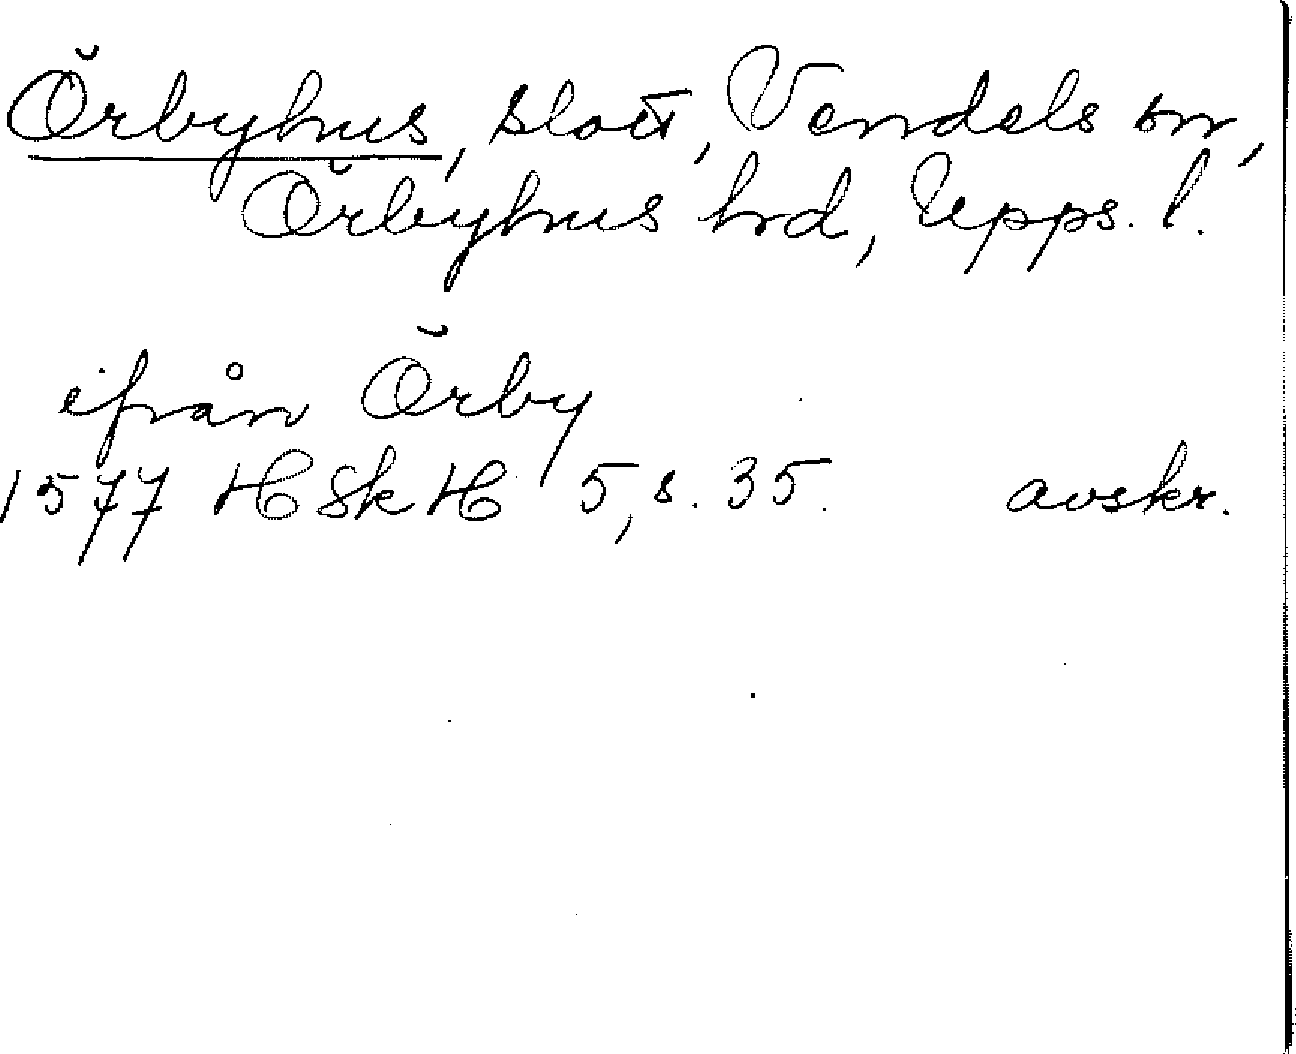 Örbyhus, slott, Vendels sn,
Örbyhus hd, Upps. l.
ifrån Örby
1577 HSkH 5, s. 35. avskr.